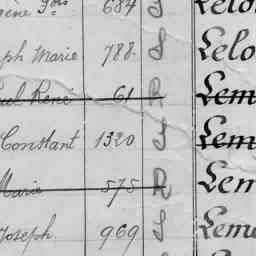 ène Fois 684 S Lelo
ph Marie 788 S Lelo
uel René 61 R Lem
Constant 1320 S Lem
Marie 575 R Lem
Joseph 969 S Leme